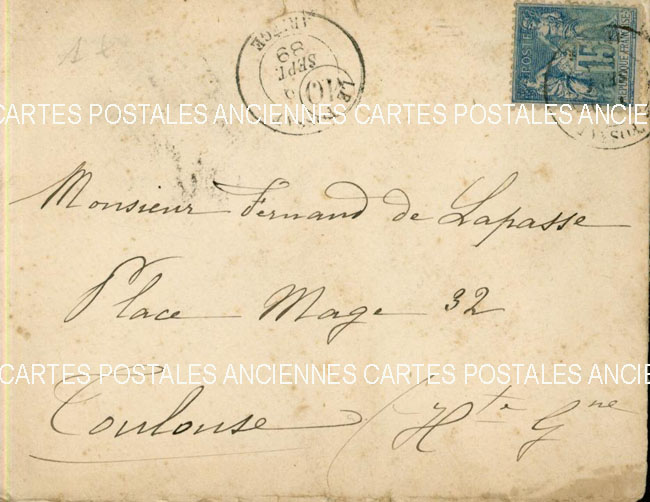 ARIEGE
SEPT.
89
POSTES
15
CARTES POSTALES ANCIENNES CARTES POSTALES ANCIENNES
Monsieur Fernand de Lapasse
Place Mage 32
CARTES POSTALES ANCIENNES CARTES POSTALES ANCIENNES
Toulouse (Hte Gne